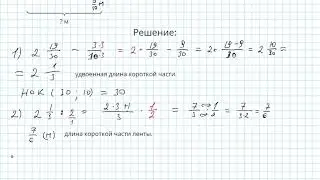 9/10 м
? м
Решение:
1) 2 19/30 - 3·3/10·3 = 2 19/30 - 9/30 = 2 19-9/30 = 2 10/30 =
= 2 1/3 удвоенная длина короткой части.
НОК (30; 10) = 30
2) 2 1/3 : 2/1 = 2·3+1/3 · 1/2 = 7·1/3·2 = 7/3·2 = 7/6
7/6 (м) длина короткой части ленты.